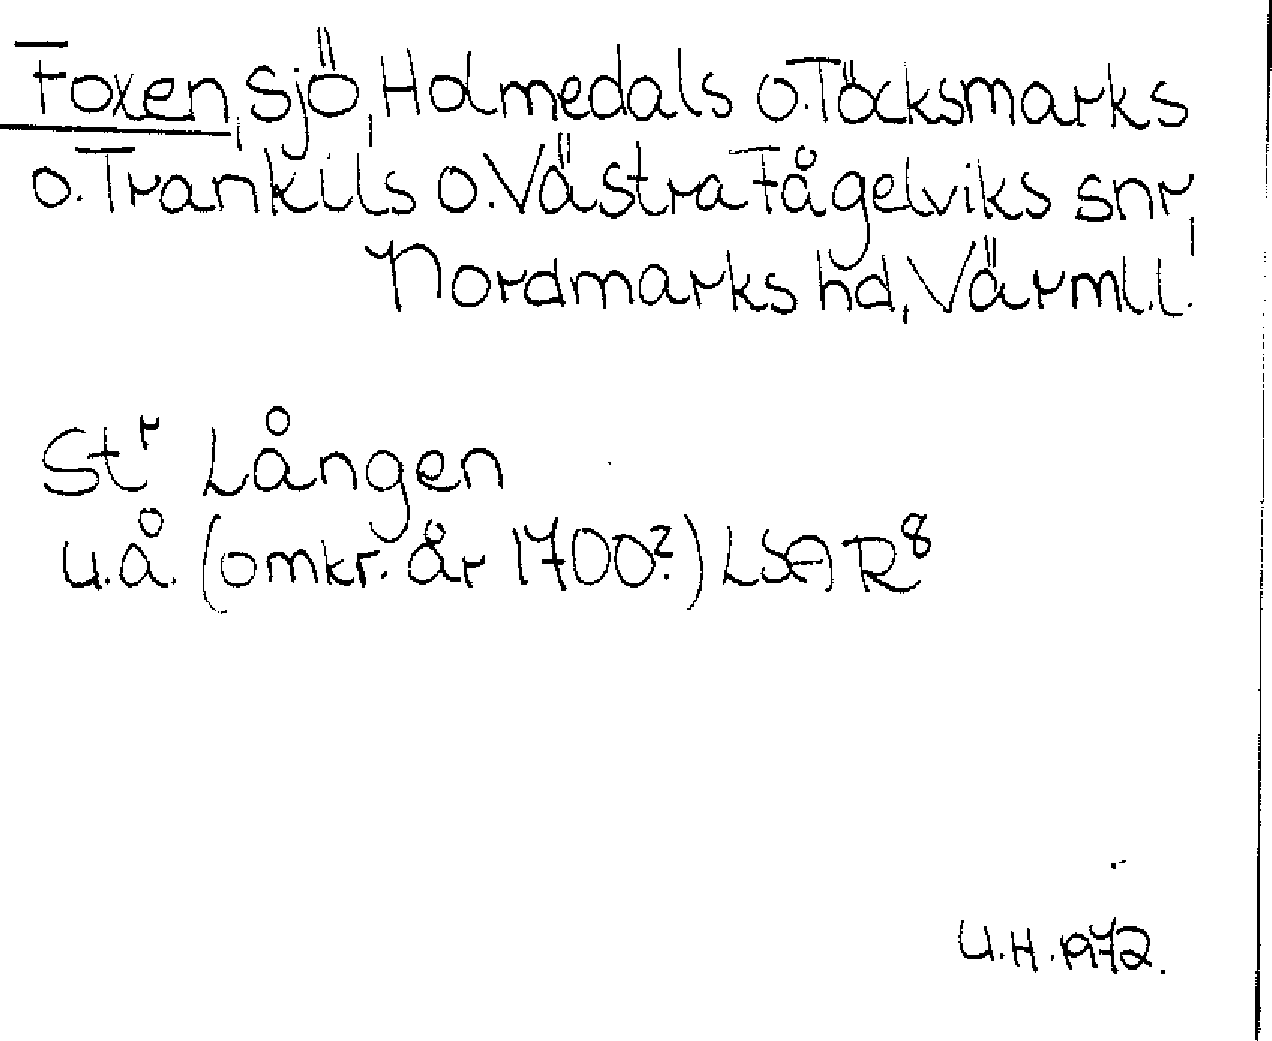 Foxen, sjö, Holmedals o. Töcksmarks
o. Trankils o. Västra Fågelviks snr,
Nordmarks hd, Värml.l.
Stʳ Lången
u.å. (omkr. år 1700?) LSA R⁸
U.H. 1972.